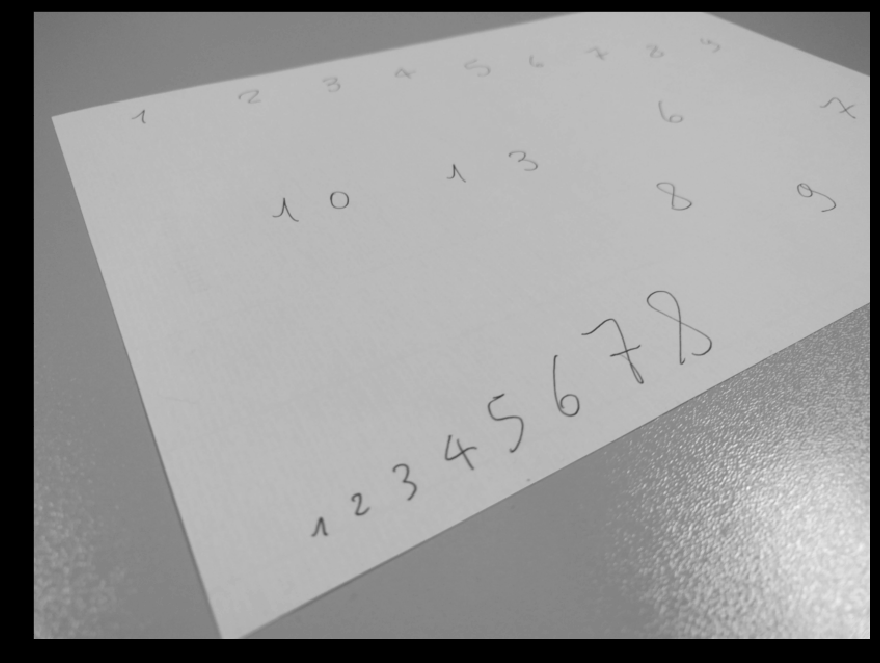 1 2 3 4 5 6 7 8 9
6 7
10 13
8 9
1 2 3 4 5 6 7 8